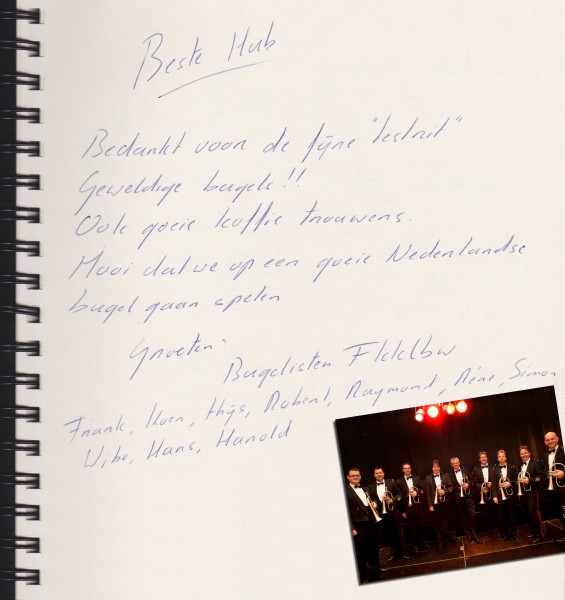 Beste Hub
Bedankt voor de fijne "testrit"
Geweldige bugels!!
Ook goeie koffie trouwens.
Mooi dat we op een goeie Nederlandse
bugel gaan spelen
Groeten.
Bugelisten FKKLBW
Frank, Koen, Thijs, Robert, Raymond, Réne, Simon
Wibo, Hans, Harold